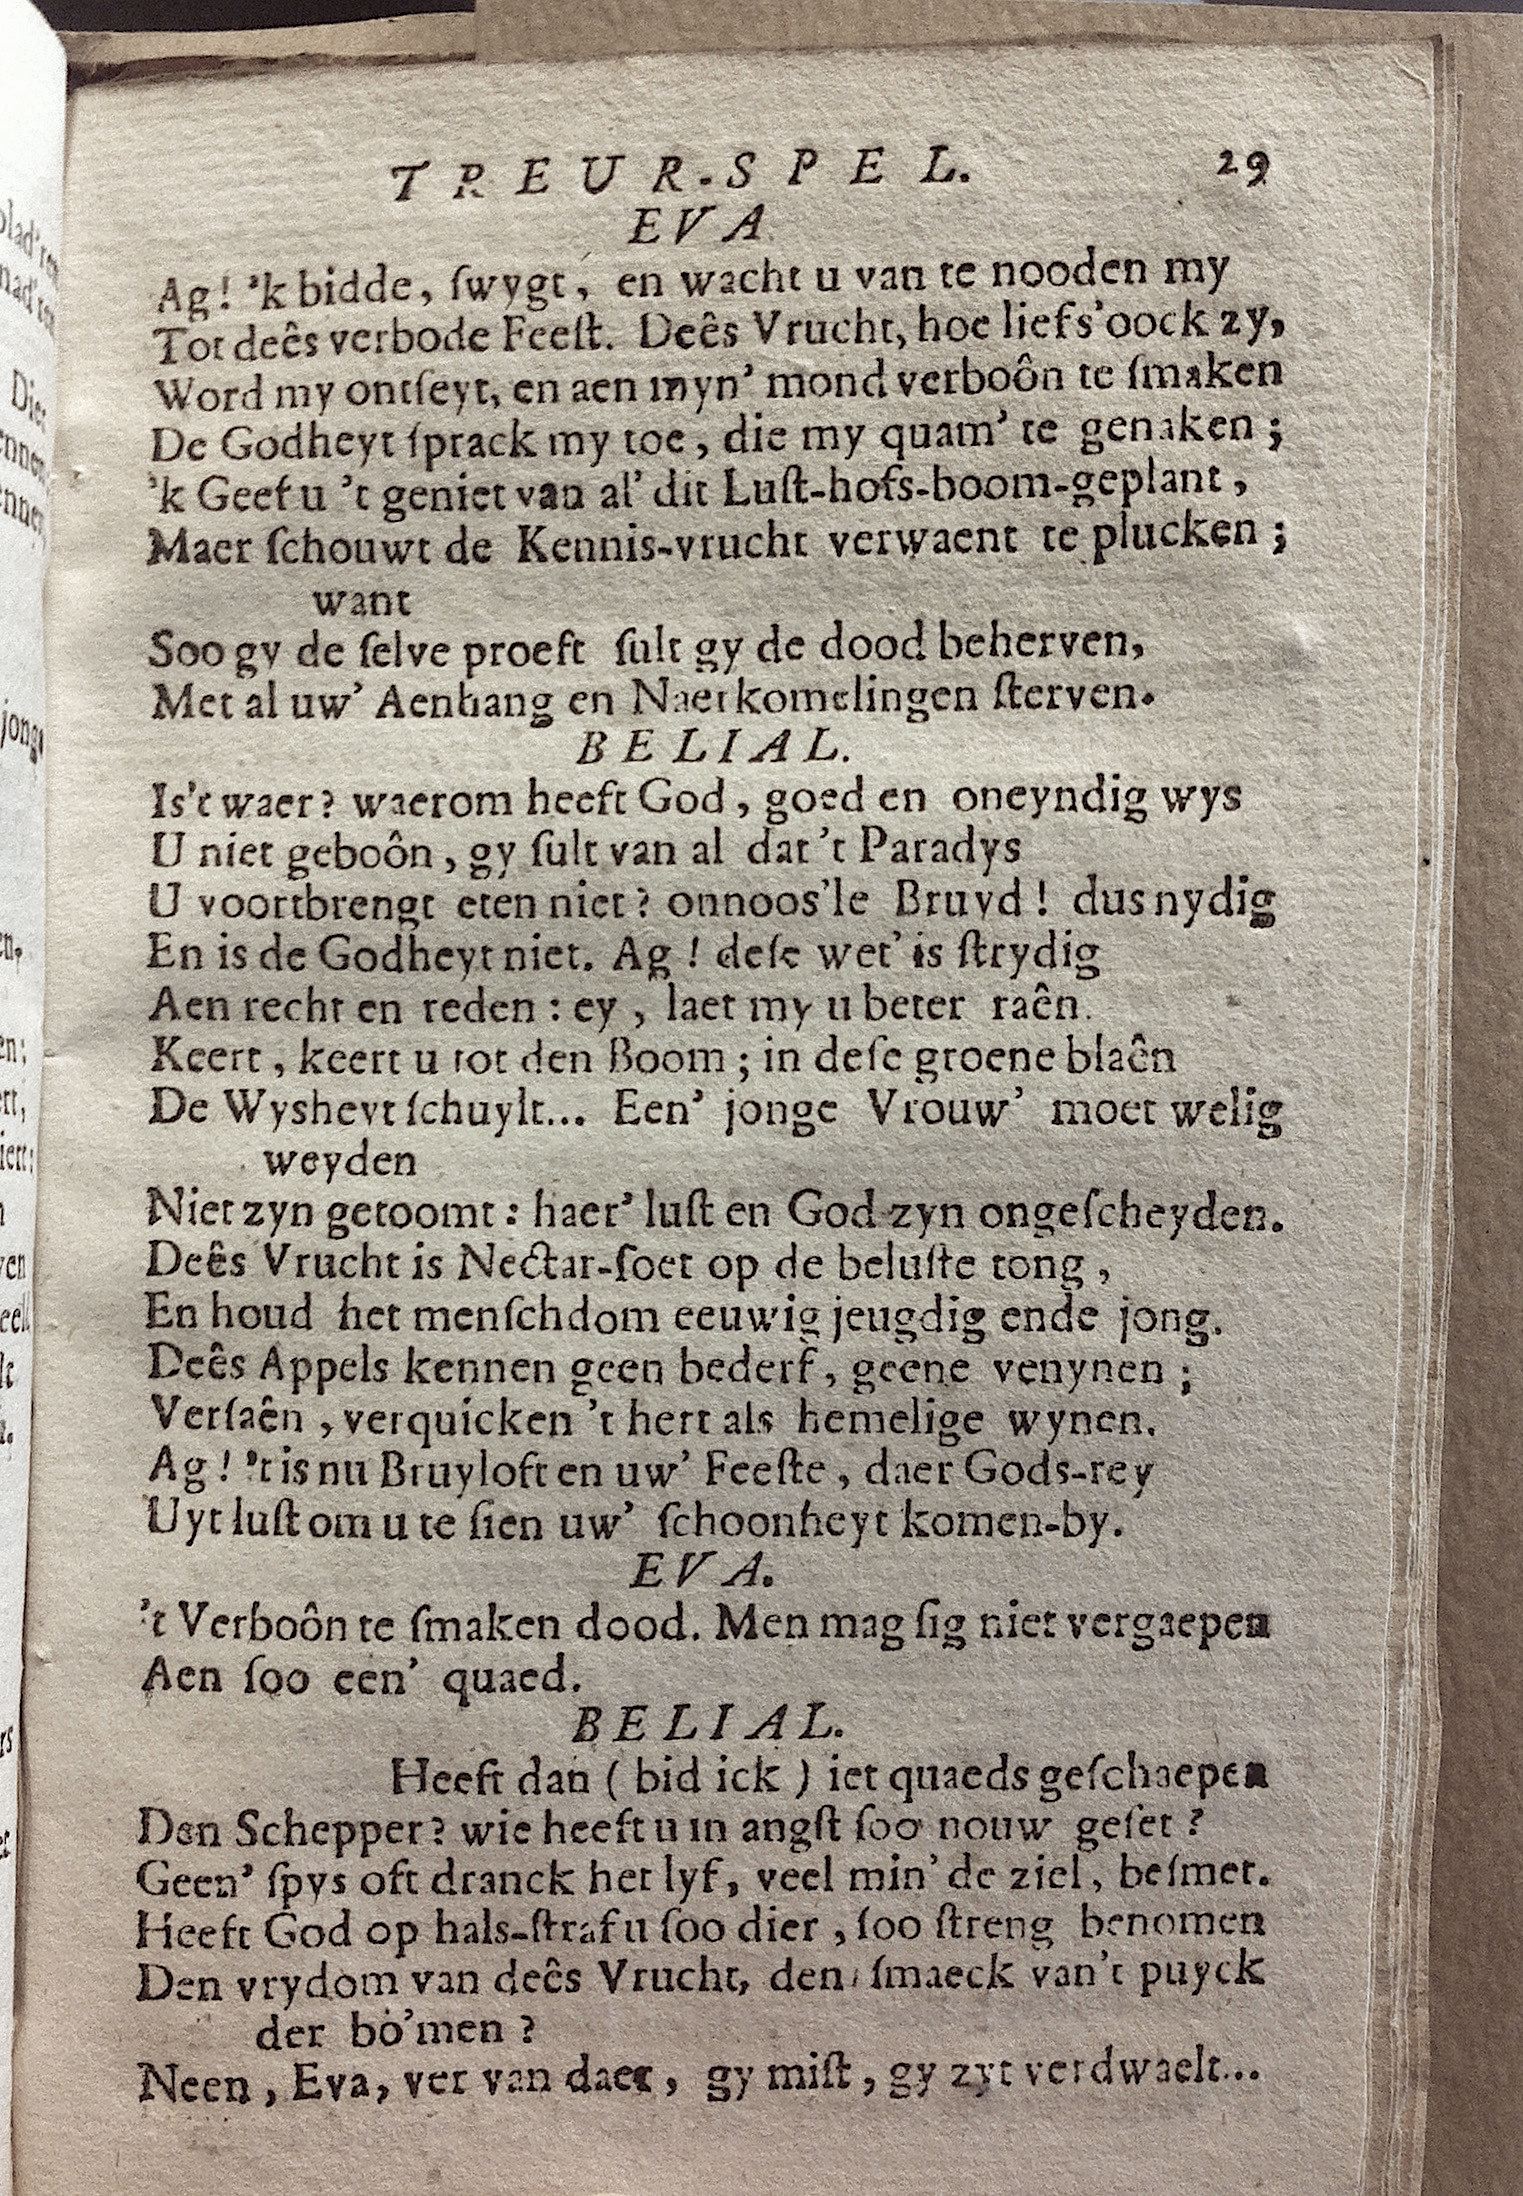 TREUR-SPEL. 29
EVA
Ag! 'k bidde, ſwygt, en wacht u van te nooden my
Tot deês verbode Feeſt. Deês Vrucht, hoe lief s'oock zy,
Word my ontſeyt, en aen myn' mond verboôn te ſmaken
De Godheyt ſprack my toe, die my quam' te genaken;
'k Geef u 't geniet van al' dit Luſt-hofs-boom-geplant,
Maer ſchouwt de Kennis-vrucht verwaent te plucken;
want
Soo gy de ſelve proeft ſult gy de dood beherven,
Met al uw' Aenhang en Naerkomelingen ſterven.
BELIAL.
Is't waer? waerom heeft God, goed en oneyndig wys
U niet geboôn, gy ſult van al dat 't Paradys
U voortbrengt eten niet? onnoos'le Bruyd! dus nydig
En is de Godheyt niet. Ag! deſe wet' is ſtrydig
Aen recht en reden: ey, laet my u beter raên.
Keert, keert u tot den Boom; in deſe groene blaên
De Wysheyt ſchuylt... Een' jonge Vrouw' moet welig
weyden
Niet zyn getoomt: haer' luſt en God zyn ongeſcheyden.
Deês Vrucht is Nectar-ſoet op de beluſte tong,
En houd het menſchdom eeuwig jeugdig ende jong.
Deês Appels kennen geen bederf, geene venynen;
Verſaên, verquicken 't hert als hemelige wynen.
Ag! 't is nu Bruyloft en uw' Feeſte, daer Gods-rey
Uyt luſt om u te ſien uw' ſchoonheyt komen-by.
EVA.
't Verboôn te ſmaken dood. Men mag ſig niet vergaepen
Aen ſoo een' quaed.
BELIAL.
Heeft dan (bid ick) iet quaeds geſchaepen
Den Schepper? wie heeft u in angſt ſoo nouw geſet?
Geen' ſpys oft dranck het lyf, veel min' de ziel, beſmet.
Heeft God op hals-ſtraf u ſoo dier, ſoo ſtreng benomen
Den vrydom van deês Vrucht, den ſmaeck van't puyck
der bo'men?
Neen, Eva, ver van daer, gy miſt, gy zyt verdwaelt...